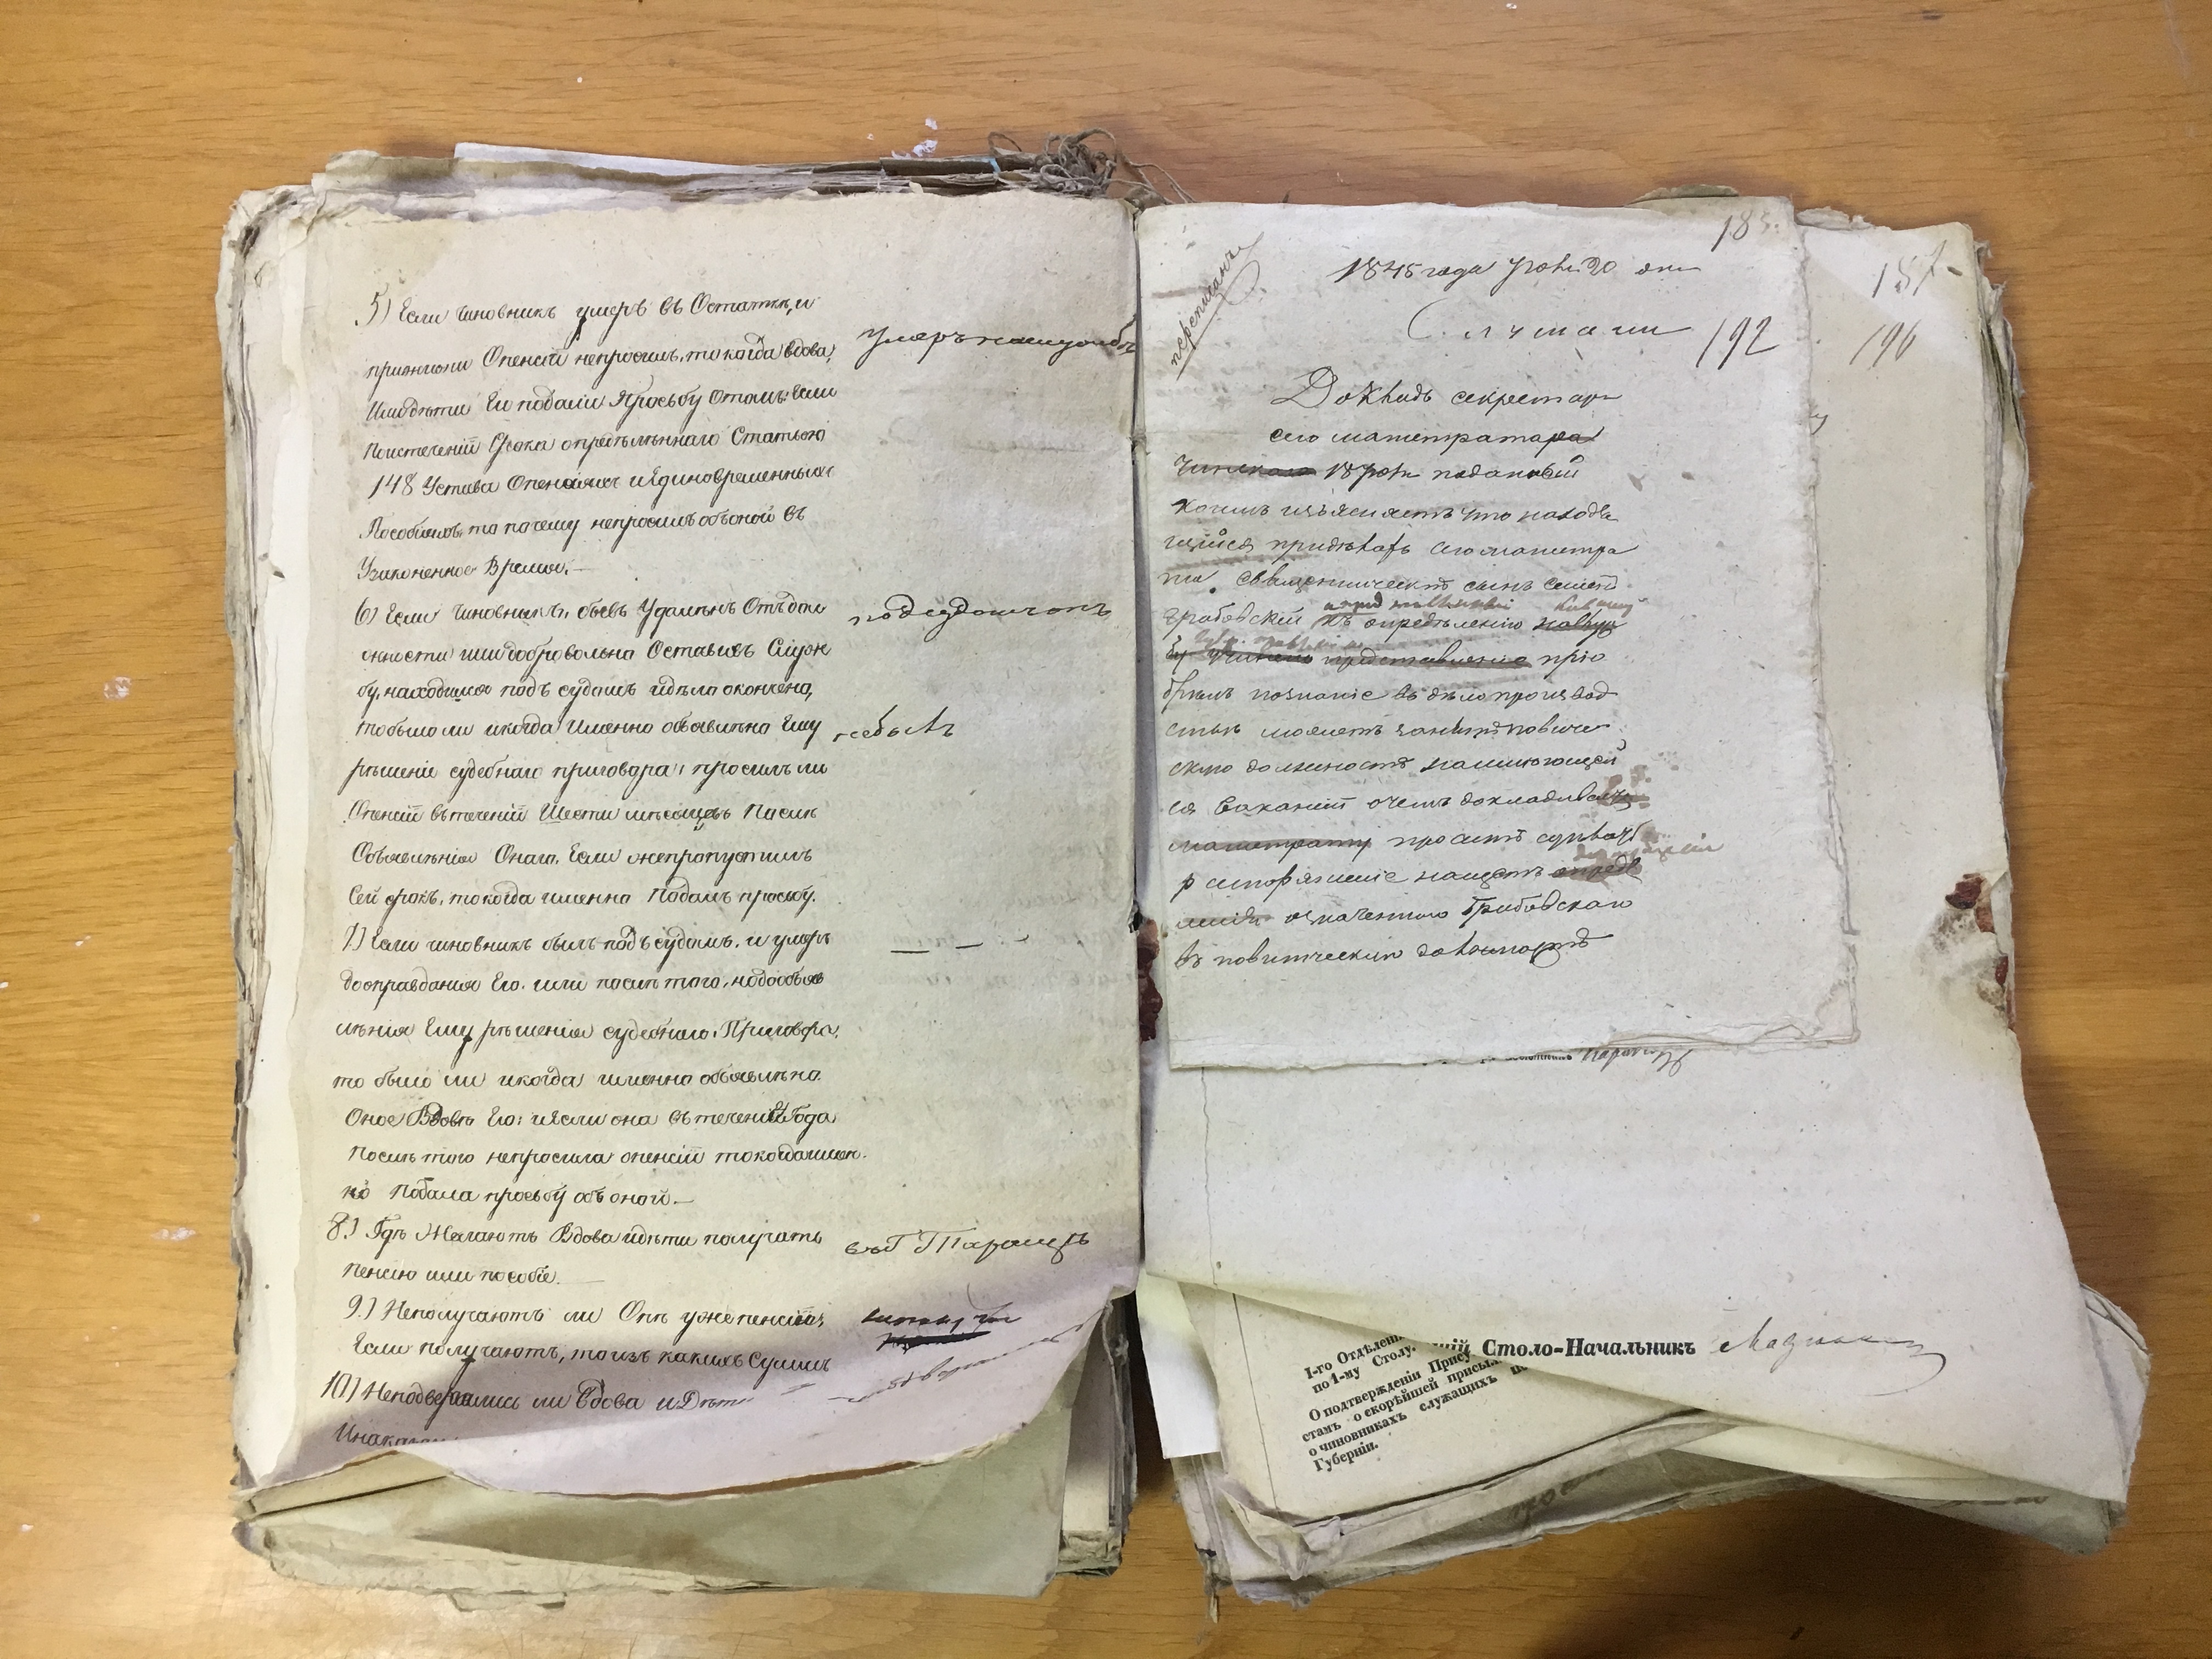 5) Если чиновникъ умеръ въ Отставкѣ, и
прижизни Опенсіи непросилъ, то когда вдова,
Илидѣти Его подали Просьбу Отомъ: если
Поистеченіи Срока опредѣленнаго Статьею
148 Устава Опенсіяхъ иЕдиновременныхъ
Пособіяхъ, то почему непросилъ обоной въ
Узаконенное Время.—
6) Если чиновникъ, бывъ Удаленъ Отъ дол
жности или добровольно Оставивъ Служ
бу, находился подъ судомъ идѣло окончено,
тобыло ли икогда Именно объявлено Ему
рѣшеніе судебнаго приговора; просилъ ли
Опенсіи втеченіи Шести мѣсяцовъ Послѣ
Объявленія Онаго. Если жепропустилъ
Сей срокъ, токогда именно Подалъ просьбу.
7) Если чиновникъ былъ подъ судомъ, и умеръ
дооправданія Его. или послѣ того, нодообъяв
ленія Ему рѣшенія судебнаго Приговора,
то было ли икогда именно объявлено
Оное Вдовѣ Его: иЕсли она въ теченіи Года
Послѣ того непросила опенсіи токогдаимен.
но Подала просьбу объ оной.—
8.) Гдѣ Желаютъ Вдова идѣти получать
Пенсію или пособіе.
9.) Неполучаютъ ли Они ужепенсіи,
Если получаютъ, тоизъ какихъ Суммъ
10) Неподвергались ли Вдова и Дѣти
Инаказан
умеръ наслужбѣ
подсудомъ
небылъ
— — -
въ Г Таращѣ
переписанъ
183.
1845 года 20 дня
Слушали
192
Докладъ секретаря
сего магистрата
18 поданный
коимъ изъясняетъ что находя
щійся придѣлахъ сего магистра
та. священническій сынъ
Грабовскій къ опредѣленію
представленіе пріо
брѣлъ познаніе въ дѣлопроизвод
ствѣ можетъ занять повытче
скую должность
ся Ваканціи очемъ докладывая
магистрату проситъ сдѣлать
распоряженіе насчетъ опредѣ
ленія означеннаго Грабовскаго
въ повытческую должность
157.
196
Столо-Начальникъ
1-го Отдѣлен
по 1-му Столу.
О подтвержденіи Прису
стамъ о скорѣйшей присыл
о чиновникахъ служащихъ по
Губерніи.